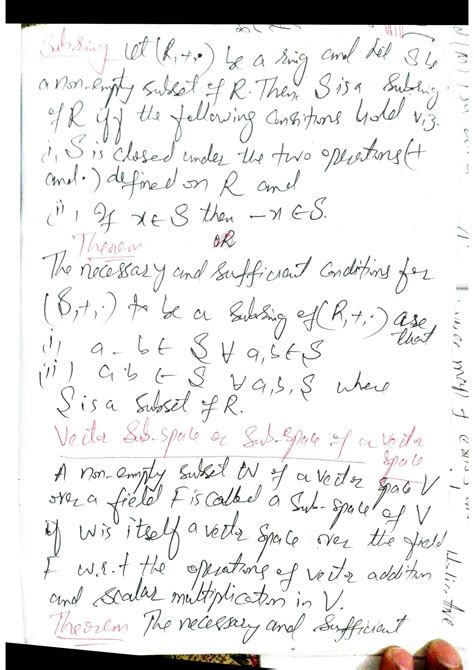 Subring Let (R,+,·) be a ring and let S be
a non-empty subset of R. Then S is a Subring
of R iff the following conditions hold viz.
(i) S is closed under the two operations (+
and ·) defined on R and
(ii) If x ∈ S then -x ∈ S.
OR
Theorem
The necessary and sufficient conditions for
(S,+,·) to be a Subring of (R,+,·) are
that
(i) a-b ∈ S ∀ a,b ∈ S
(ii) a·b ∈ S ∀ a,b, S where
S is a Subset of R.
Vector Sub-space or Sub-space of a vector
Space
A non-empty subset W of a vector space V
over a field F is called a Sub-space of V
if W is itself a vector space over the field
F w.r.t the operations of vector addition
and scalar multiplication in V.
Theorem The necessary and sufficient